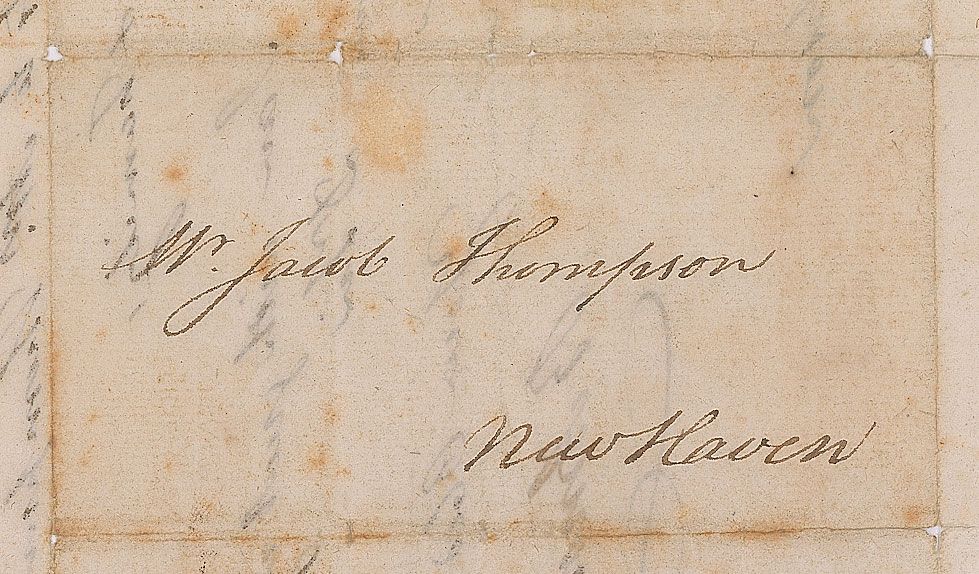 Mr. Jacob Thompson
New Haven